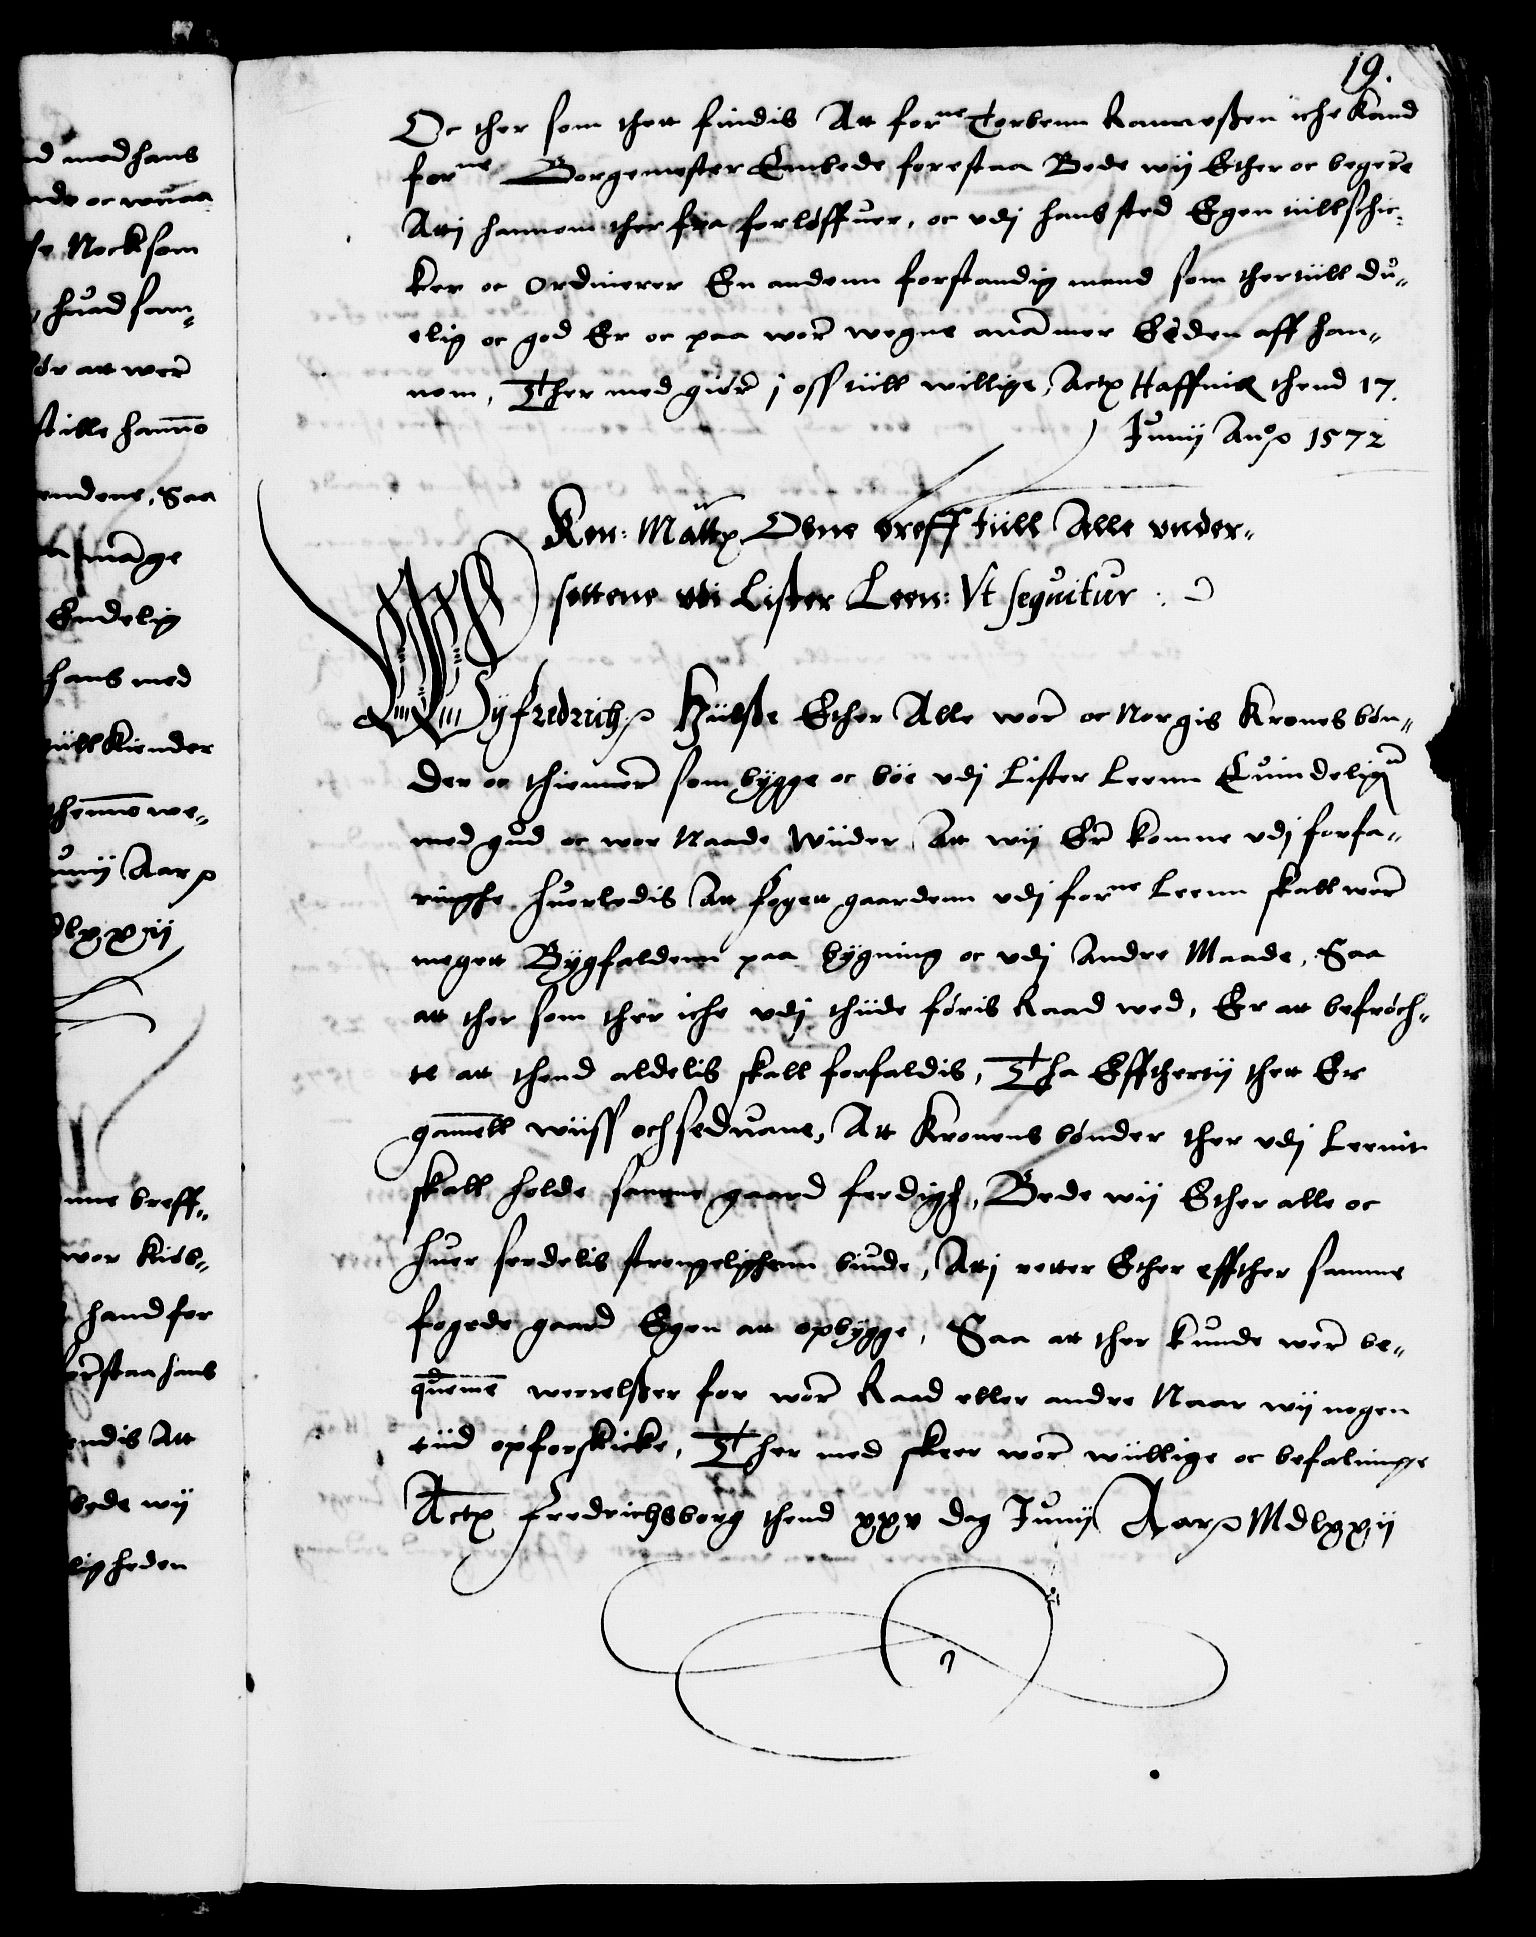 19.
Oc ther som thett findis Att forne Torbenn Hannessen iche Kand
forne Borgemester Embede forestaa Bede wij Ether oc begere
Attj hannom ther fra forløffuer, oc vdj hans sted Egen tillschic-
ker oc ordinerer En andenn forstandig mand som thertill du-
elig oc god Er oc paa wor wegne anammer Eeden aff han-
nom, Ther med giør j oss till willige, Actz Haffniæ thend 17.
Junij Ano 1572
Kon: Mattz Obne breff till Alle vnder-
sottene vdi Lister Leen: Vt sequitur
Wij Fredrich Hilße Ether Alle wor oc Norgis Krones bøn-
der oc thiennere som bygge oc boe vdj Lister Leenn Euindelig
med gud oc wor Naade Wiider Att wij Er komne vdj forfa-
ringhe huorledis Att fogett gaardenn vdj forne Leenn skall were
megett Bygfaldenn paa bygning oc vdj Andre Maade, Saa
att ther som ther iche vdj thiide føris Raad wed, Er att befrøch-
te att thend aldelis skall forfaldis, Tha Effthertij thett Er
gamell wiiss och seduane, Att Kronens bønder ther vdj Leenit
skall holde samme gaard ferdigh, Bede wij Ether alle oc
huer serdelis strengelighenn biude, Attj retter Ether effther samme
fogede gaard Egen att opbygge, Saa att ther kunde were be-
queme werrelßer for wor Raad eller andre Naar wij nogen
tiid opforskicke, Ther med skeer wor wiillige oc befalinge
Actz Fredrichsborg thend xxv dag Junij Aar MDlxxij
d med hans
nde oc wnaa
he Nock som
, huad som-
ør att were
stille hanno
endene, Saa
mange
Endelig
hans med
till kiender
thenno we-
unij Aar
dlxxij
nne breff-
wor Kiøb-
hand for
forstaa hans
endis Att
bede wij
ligheden